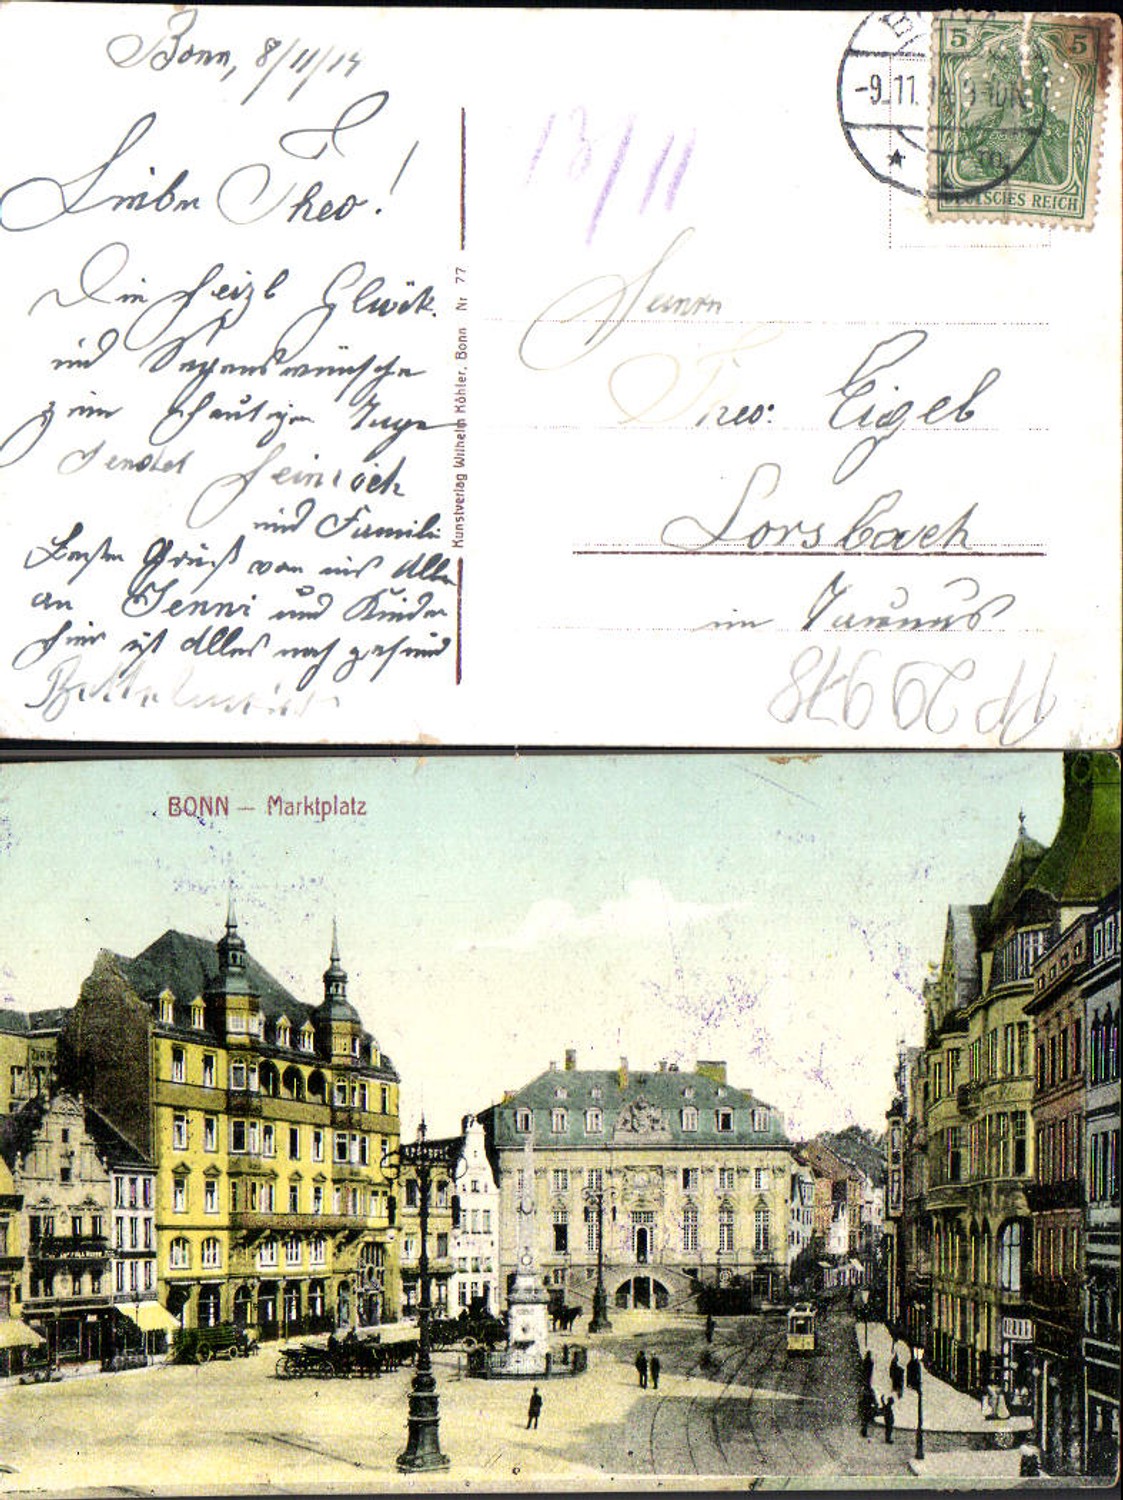 Bonn, 8/11/14
Lieber Theo!
Die herzl Glück
und Segenswünsche
zum heutigen Tage
sendet Heinrich
und Famili
Besten Gruß von uns Allen
an Jenni und Kinder
hier ist Alles noch gesund
Kunstverlag Wilhelm Köhler, Bonn Nr 77
13/11
-9.11.14.9-10N
5 5
DEUTSCHES REICH
Herrn
Theo: Eigeb
Lorsbach
im Taunus
BONN — Marktplatz